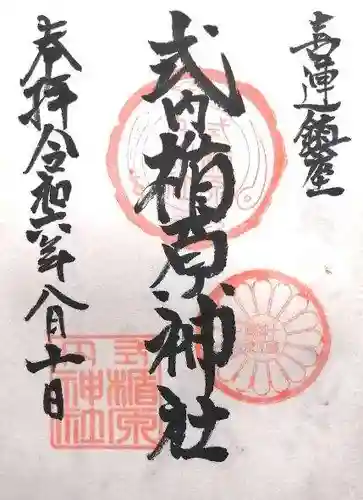 喜運鎮座
式内楯原神社
奉拝令和六年八月十日
式内
楯原
神社